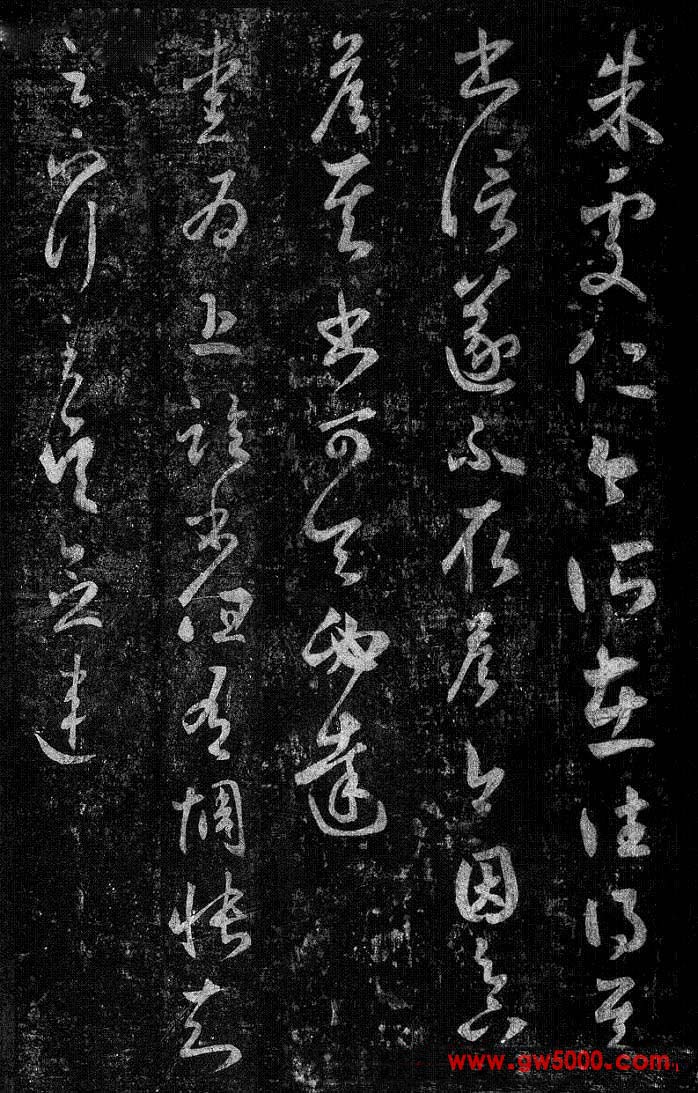 朱處仁今所在往得其
書信遂不取答今因足下
答其書可令必達
愛為上臨書但有惆悵知
足下行至吳念違
www.gw5000.com